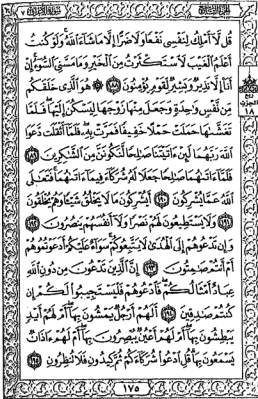 الجزء التاسع سورة الأعراف ٧
قُل لَّآ أَمْلِكُ لِنَفْسِى نَفْعًا وَلَا ضَرًّا إِلَّا مَا شَآءَ ٱللَّهُ وَلَوْ كُنتُ
أَعْلَمُ ٱلْغَيْبَ لَٱسْتَكْثَرْتُ مِنَ ٱلْخَيْرِ وَمَا مَسَّنِىَ ٱلسُّوٓءُ إِنْ
أَنَا۠ إِلَّا نَذِيرٌ وَبَشِيرٌ لِّقَوْمٍ يُؤْمِنُونَ ١٨٨ هُوَ ٱلَّذِى خَلَقَكُم
مِّن نَّفْسٍ وَٰحِدَةٍ وَجَعَلَ مِنْهَا زَوْجَهَا لِيَسْكُنَ إِلَيْهَا فَلَمَّا
تَغَشَّىٰهَا حَمَلَتْ حَمْلًا خَفِيفًا فَمَرَّتْ بِهِۦ فَلَمَّآ أَثْقَلَت دَّعَوَا
ٱللَّهَ رَبَّهُمَا لَئِنْ ءَاتَيْتَنَا صَٰلِحًا لَّنَكُونَنَّ مِنَ ٱلشَّٰكِرِينَ ١٨٩
فَلَمَّآ ءَاتَىٰهُمَا صَٰلِحًا جَعَلَا لَهُۥ شُرَكَآءَ فِيمَآ ءَاتَىٰهُمَا فَتَعَٰلَى
ٱللَّهُ عَمَّا يُشْرِكُونَ ١٩٠ أَيُشْرِكُونَ مَا لَا يَخْلُقُ شَيْـًٔا وَهُمْ يُخْلَقُونَ
١٩١ وَلَا يَسْتَطِيعُونَ لَهُمْ نَصْرًا وَلَآ أَنفُسَهُمْ يَنصُرُونَ ١٩٢
وَإِن تَدْعُوهُمْ إِلَى ٱلْهُدَىٰ لَا يَتَّبِعُوكُمْ سَوَآءٌ عَلَيْكُمْ أَدَعَوْتُمُوهُمْ
أَمْ أَنتُمْ صَٰمِتُونَ ١٩٣ إِنَّ ٱلَّذِينَ تَدْعُونَ مِن دُونِ ٱللَّهِ
عِبَادٌ أَمْثَالُكُمْ فَٱدْعُوهُمْ فَلْيَسْتَجِيبُوا۟ لَكُمْ إِن
كُنتُمْ صَٰدِقِينَ ١٩٤ أَلَهُمْ أَرْجُلٌ يَمْشُونَ بِهَآ أَمْ لَهُمْ أَيْدٍ
يَبْطِشُونَ بِهَآ أَمْ لَهُمْ أَعْيُنٌ يُبْصِرُونَ بِهَآ أَمْ لَهُمْ ءَاذَانٌ
يَسْمَعُونَ بِهَا قُلِ ٱدْعُوا۟ شُرَكَآءَكُمْ ثُمَّ كِيدُونِ فَلَا تُنظِرُونِ ١٩٥
ربع
الحزب
١٨
١٧٥